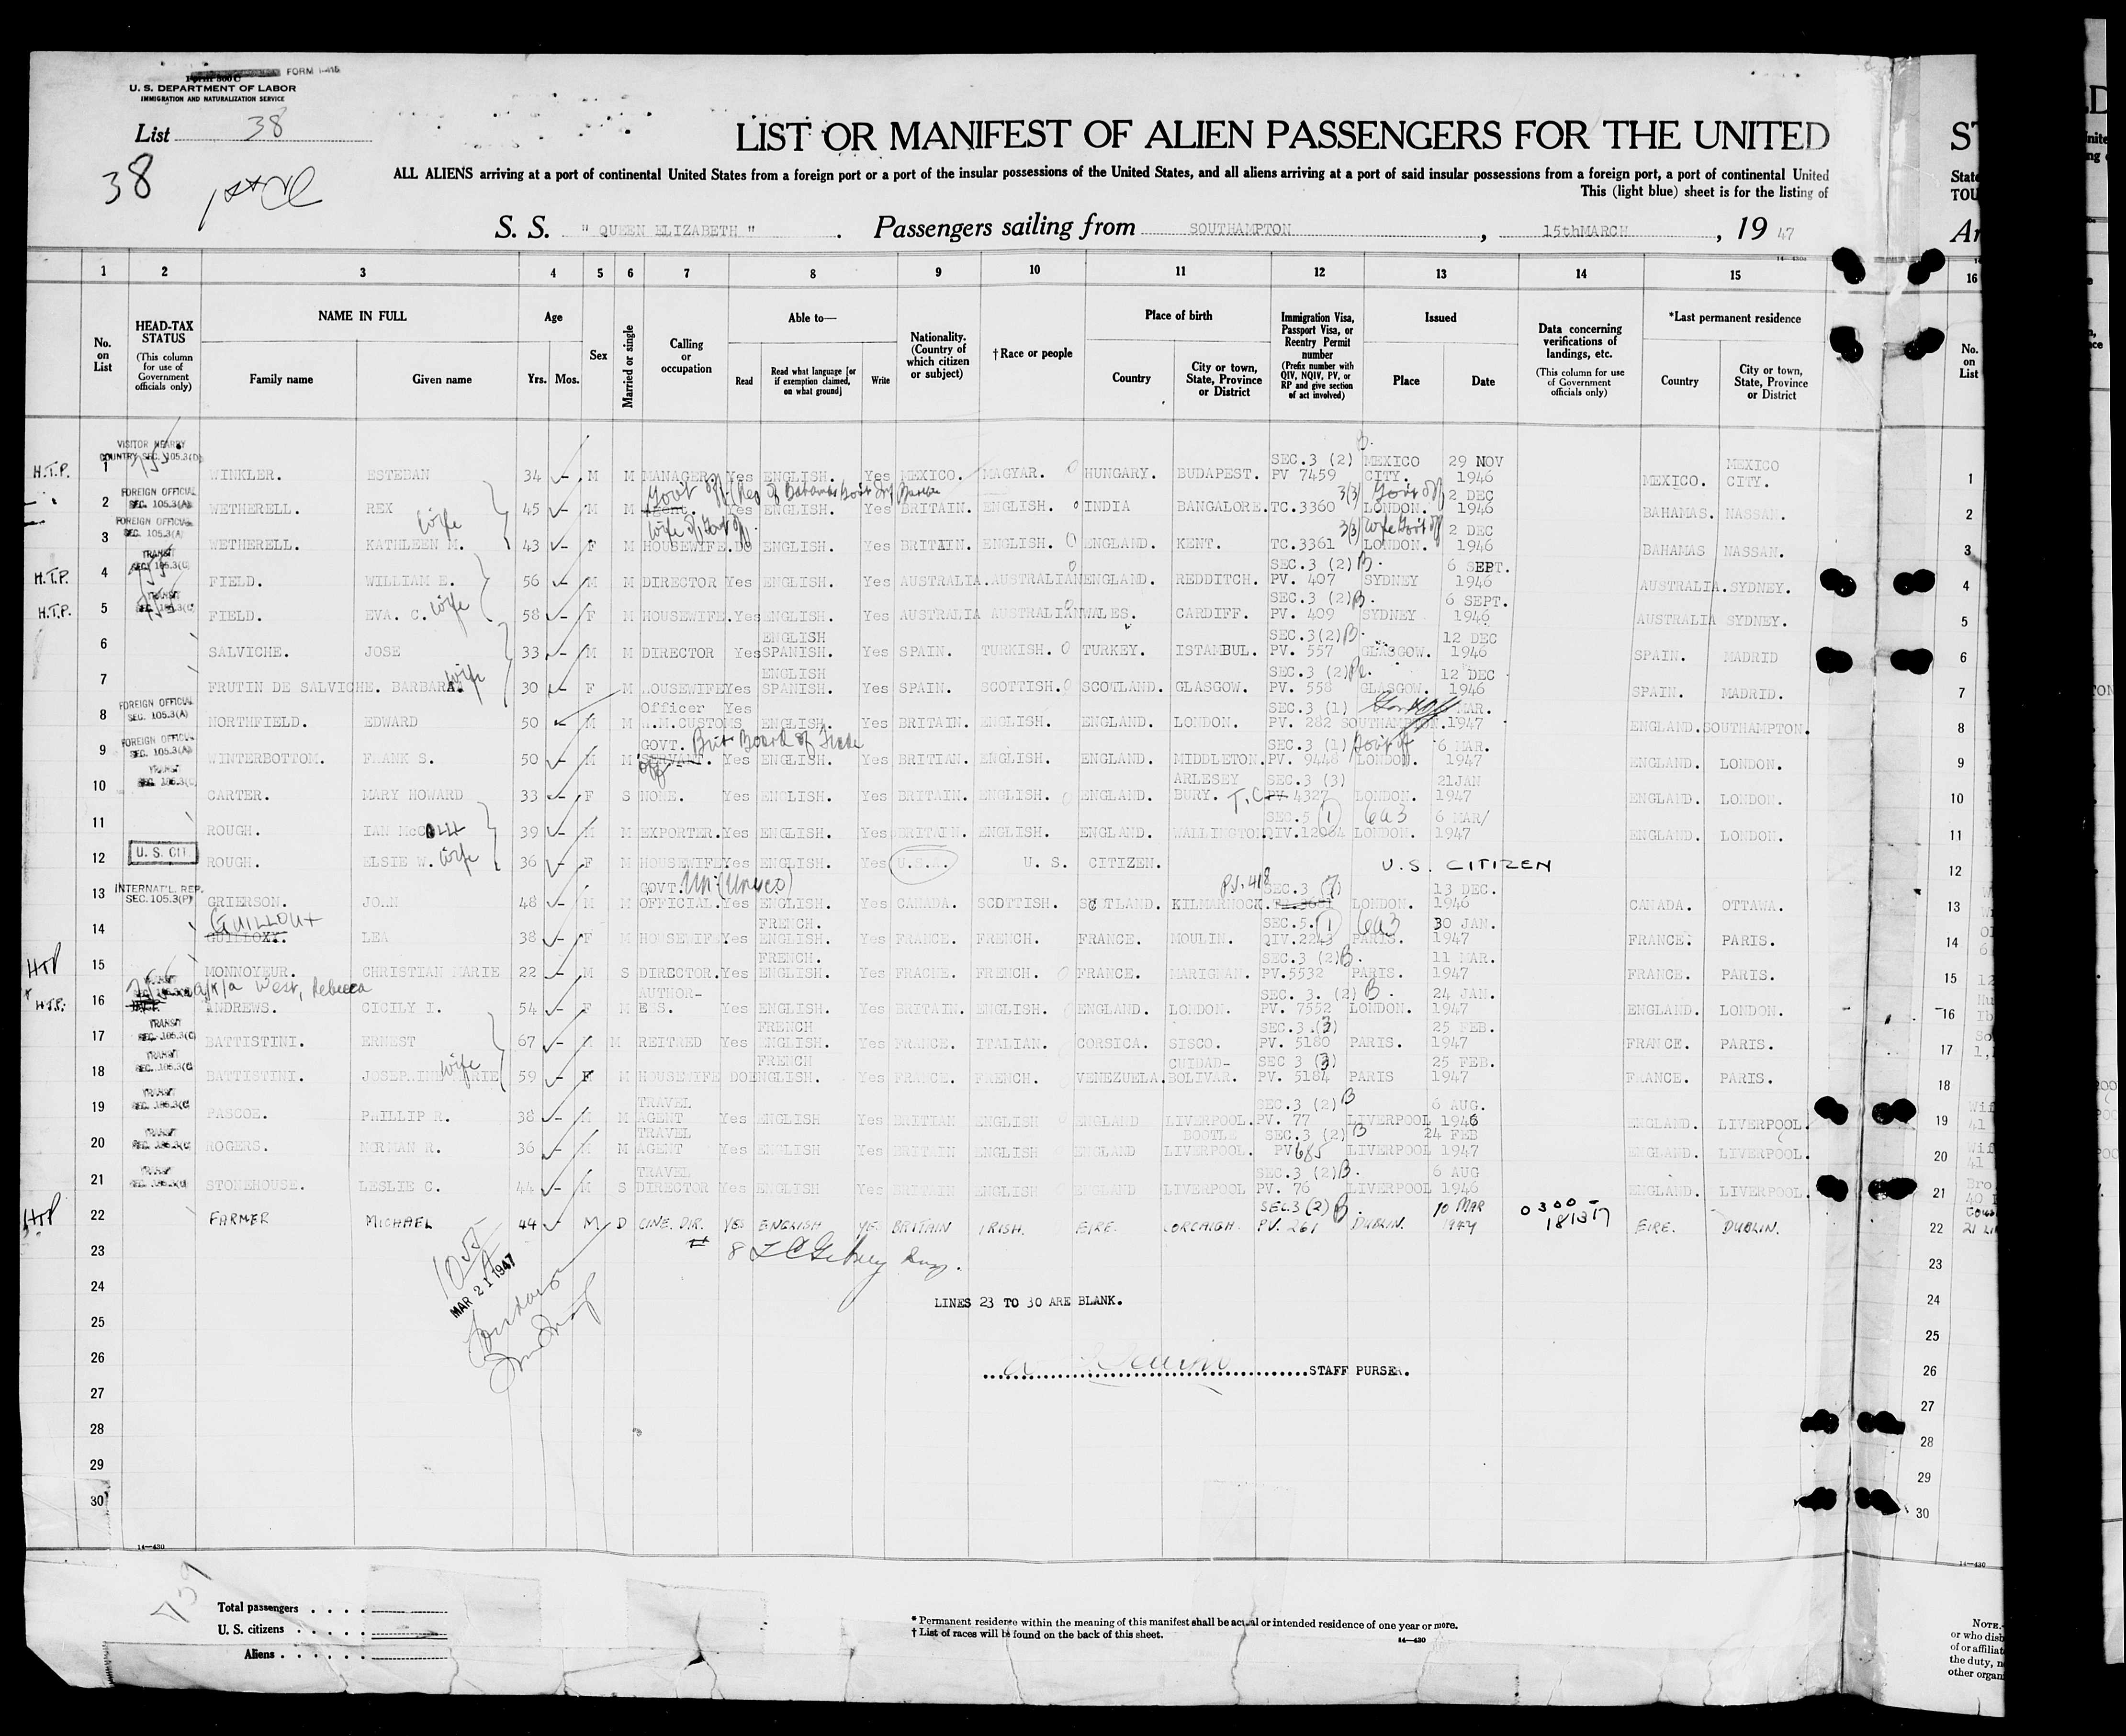 FORM I-415
U. S. DEPARTMENT OF LABOR
IMMIGRATION AND NATURALIZATION SERVICE
List 38
38
1st Cl
LIST OR MANIFEST OF ALIEN PASSENGERS FOR THE UNITED
ALL ALIENS arriving at a port of continental United States from a foreign port or a port of the insular possessions of the United States, and all aliens arriving at a port of said insular possessions from a foreign port, a port of continental United
This (light blue) sheet is for the listing of
S. S. " QUEEN ELIZABETH " . Passengers sailing from SOUTHAMPTON , 15thMARCH , 19 47
1 2 3 4 5 6 7 8 9 10 11 12 13 14 15 16
No. on List
HEAD-TAX STATUS (This column for use of Government officials only)
NAME IN FULL Family name Given name
Age Yrs. Mos.
Sex
Married or single
Calling or occupation
Able to— Read Read what language [or if exemption claimed, on what ground] Write
Nationality. (Country of which citizen or subject)
† Race or people
Place of birth Country City or town, State, Province or District
Immigration Visa, Passport Visa, or Reentry Permit number (Prefix number with QIV, NQIV, PV, or RP and give section of act involved)
Issued Place Date
Data concerning verifications of landings, etc. (This column for use of Government officials only)
*Last permanent residence Country City or town, State, Province or District
No. on List
VISITOR NEARBY COUNTRY SEC. 105.3(D)
H.T.P. 1 WINKLER. ESTEBAN 34 M M MANAGER. Yes ENGLISH. Yes MEXICO. MAGYAR. HUNGARY. BUDAPEST. SEC.3 (2) B. PV 7459 MEXICO CITY. 29 NOV 1946 MEXICO. MEXICO CITY. 1
FOREIGN OFFICIAL SEC. 105.3(A)
2 WETHERELL. REX 45 M M Agent. Gov't off. (Rep of Bahamas Gov't Yes ENGLISH. Yes BRITAIN. ENGLISH. INDIA BANGALORE. TC.3360 3(3) Gov't off LONDON. 2 DEC 1946 BAHAMAS. NASSAN. 2
FOREIGN OFFICIAL SEC. 105.3(A)
3 WETHERELL. KATHLEEN M. wife 43 F M HOUSEWIFE. Wife of Gov't off. DO ENGLISH. Yes BRITAIN. ENGLISH. ENGLAND. KENT. TC.3361 3(3) Wife Gov't off LONDON. 2 DEC 1946 BAHAMAS NASSAN. 3
TRANSIT SEC. 105.3(C)
H.T.P. 4 FIELD. WILLIAM E. 56 M M DIRECTOR Yes ENGLISH. Yes AUSTRALIA. AUSTRALIAN ENGLAND. REDDITCH. SEC.3 (2) B. PV. 407 SYDNEY 6 SEPT. 1946 AUSTRALIA. SYDNEY. 4
TRANSIT SEC. 105.3(C)
H.T.P. 5 FIELD. EVA. C. wife 58 F M HOUSEWIFE. Yes ENGLISH. Yes AUSTRALIA AUSTRALIAN WALES. CARDIFF. SEC.3 (2) B. PV. 409 SYDNEY 6 SEPT. 1946 AUSTRALIA SYDNEY. 5
6 SALVICHE. JOSE 33 M M DIRECTOR Yes ENGLISH SPANISH. Yes SPAIN. TURKISH. TURKEY. ISTAMBUL. SEC.3(2) B. PV. 557 GLASGOW. 12 DEC 1946 SPAIN. MADRID 6
7 FRUTIN DE SALVICHE. BARBARA. wife 30 F M HOUSEWIFE Yes ENGLISH SPANISH. Yes SPAIN. SCOTTISH. SCOTLAND. GLASGOW. SEC.3 (2) PV. 558 GLASGOW. 12 DEC 1946 SPAIN. MADRID. 7
FOREIGN OFFICIAL SEC. 105.3(A)
8 NORTHFIELD. EDWARD 50 M M Officer H.M.CUSTOMS Yes ENGLISH. Yes BRITAIN. ENGLISH. ENGLAND. LONDON. SEC.3 (1) Gov't Off PV. 282 SOUTHAMPTON. MAR. 1947 ENGLAND. SOUTHAMPTON. 8
FOREIGN OFFICIAL SEC. 105.3(A)
9 WINTERBOTTOM. FRANK S. 50 M M GOVT. SERVANT. off Brit Board of Trade Yes ENGLISH. Yes BRITIAN. ENGLISH. ENGLAND. MIDDLETON. SEC.3 (1) Gov't off PV. 9448 LONDON. 6 MAR. 1947 ENGLAND. LONDON. 9
TRANSIT SEC. 105.3(C)
10 CARTER. MARY HOWARD 33 F S NONE. Yes ENGLISH. Yes BRITAIN. ENGLISH. ENGLAND. ARLESEY BURY. SEC.3 (3) T.C. PV 4327 LONDON. 21JAN 1947 ENGLAND. LONDON. 10
11 ROUGH. IAN McCOLL 39 M M EXPORTER. Yes ENGLISH. Yes BRITAIN. ENGLISH. ENGLAND. WALLINGTON SEC.5 (1) 6a3 QIV.12064 LONDON. 6 MAR/ 1947 ENGLAND. LONDON. 11
U. S. CIT.
12 ROUGH. ELSIE W. wife 36 F M HOUSEWIFE Yes ENGLISH. Yes U.S.A. U. S. CITIZEN. U.S. CITIZEN 12
INTERNAT'L. REP. SEC. 105.3(P)
13 GRIERSON. JOHN 48 M M GOVT. OFFICIAL. UN (Unesco) Yes ENGLISH. Yes CANADA. SCOTTISH. SCOTLAND. KILMARNOCK. SEC.3 (7) P.V. 418 LONDON. 13 DEC. 1946 CANADA. OTTAWA. 13
GUILLOUX
14 GUILLOXY. LEA 38 F M HOUSEWIFE Yes FRENCH. ENGLISH. Yes FRANCE. FRENCH. FRANCE. MOULIN. SEC.5. (1) 6a3 QIV.2243 PARIS. 30 JAN. 1947 FRANCE. PARIS. 14
HTP 15 MONNOYEUR. CHRISTIAN MARIE 22 M S DIRECTOR. Yes FRENCH. ENGLISH. Yes FRACNE. FRENCH. FRANCE. MARIGNAN. SEC.3 (2) B. PV.5532 PARIS. 11 MAR. 1947 FRANCE. PARIS. 15
a/k/a West, Rebecca
H.T.P. 16 ANDREWS. CICILY I. 54 F M AUTHOR-ESS. Yes ENGLISH. Yes BRITAIN. ENGLISH. ENGLAND. LONDON. SEC. 3. (2) B. PV. 7552 LONDON. 24 JAN. 1947 ENGLAND. LONDON. 16
TRANSIT SEC. 105.3(C)
17 BATTISTINI. ERNEST 67 M REITRED Yes FRENCH ENGLISH. Yes FRANCE. ITALIAN. CORSICA. SISCO. SEC.3 (3) PV. 5180 PARIS. 25 FEB. 1947 FRANCE. PARIS. 17
TRANSIT SEC. 105.3(C)
18 BATTISTINI. JOSEPHINE MARIE wife 59 F M HOUSEWIFE DO FRENCH ENGLISH. Yes FRANCE. FRENCH. VENEZUELA. CUIDAD-BOLIVAR. SEC 3 (3) PV. 5184 PARIS 25 FEB. 1947 FRANCE. PARIS. 18
TRANSIT SEC. 105.3(C)
19 PASCOE. PHILLIP R. 38 M M TRAVEL AGENT Yes ENGLISH Yes BRITIAN ENGLISH ENGLAND LIVERPOOL. SEC.3 (2) B PV. 77 LIVERPOOL 6 AUG. 1946 ENGLAND. LIVERPOOL. 19
TRANSIT SEC. 105.3(C)
20 ROGERS. NORMAN R. 36 M M TRAVEL AGENT Yes ENGLISH Yes BRITAIN ENGLISH ENGLAND BOOTLE LIVERPOOL. SEC.3 (2) B PV 685 LIVERPOOL 24 FEB 1947 ENGLAND. LIVERPOOL. 20
TRANSIT SEC. 105.3(C)
21 STONEHOUSE. LESLIE C. 44 M S TRAVEL DIRECTOR Yes ENGLISH Yes BRITAIN ENGLISH ENGLAND LIVERPOOL SEC.3 (2) B. PV. 76 LIVERPOOL 6 AUG 1946 ENGLAND. LIVERPOOL. 21
HTP 22 FARMER MICHAEL 44 M D CINE. DIR. YES ENGLISH YE. BRITAIN IRISH. EIRE. CORCHIGH. SEC.3 (2) B. PV. 261 DUBLIN. 10 MAR 1947 0300- EIRE. DUBLIN. 22
23 23
MAR 21 1947
24 LINES 23 TO 30 ARE BLANK. 24
25 25
26 STAFF PURSER. 26
27 27
28 28
29 29
30 30
14—430
Total passengers
U. S. citizens
Aliens
* Permanent residence within the meaning of this manifest shall be actual or intended residence of one year or more.
† List of races will be found on the back of this sheet.
14—430
NOTE.